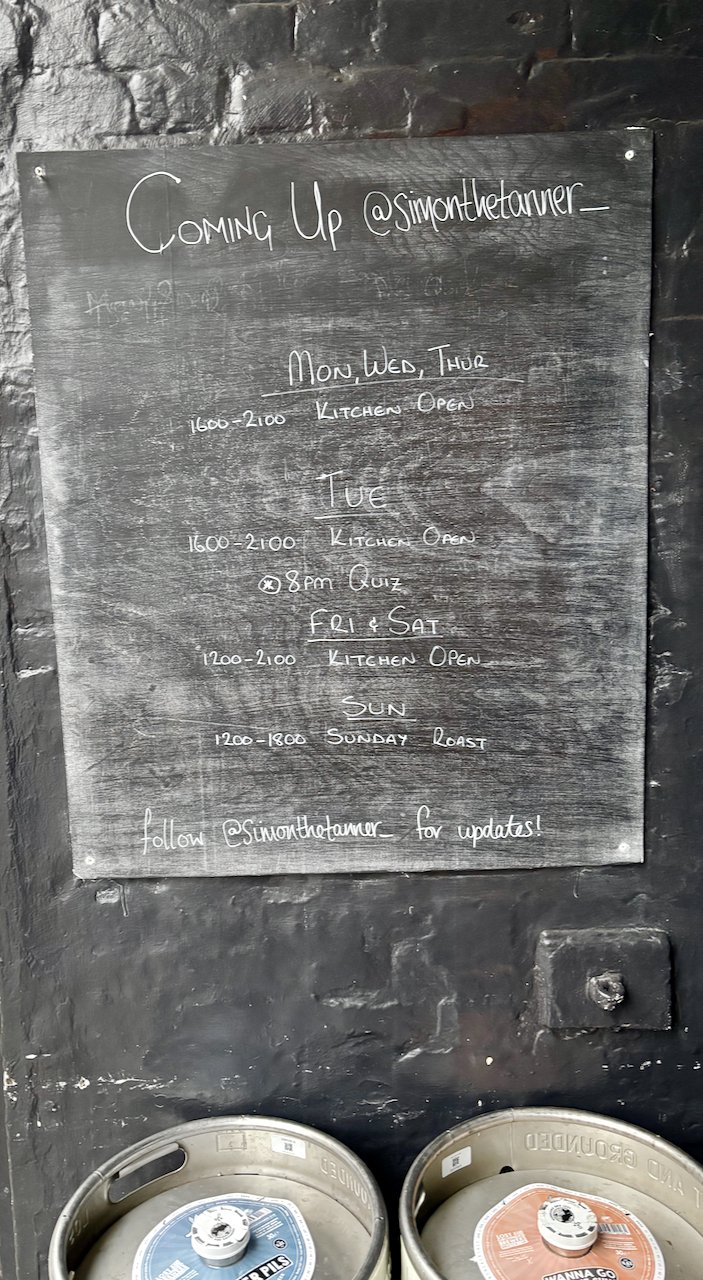 COMING UP @simonthetanner_
MON, WED, THUR
1600-2100 KITCHEN OPEN
TUE
1600-2100 KITCHEN OPEN
8PM QUIZ
FRI & SAT
1200-2100 KITCHEN OPEN
SUN
1200-1800 SUNDAY ROAST
follow @simonthetanner_ for updates!
AND GROUNDED
PILS
WANNA GO